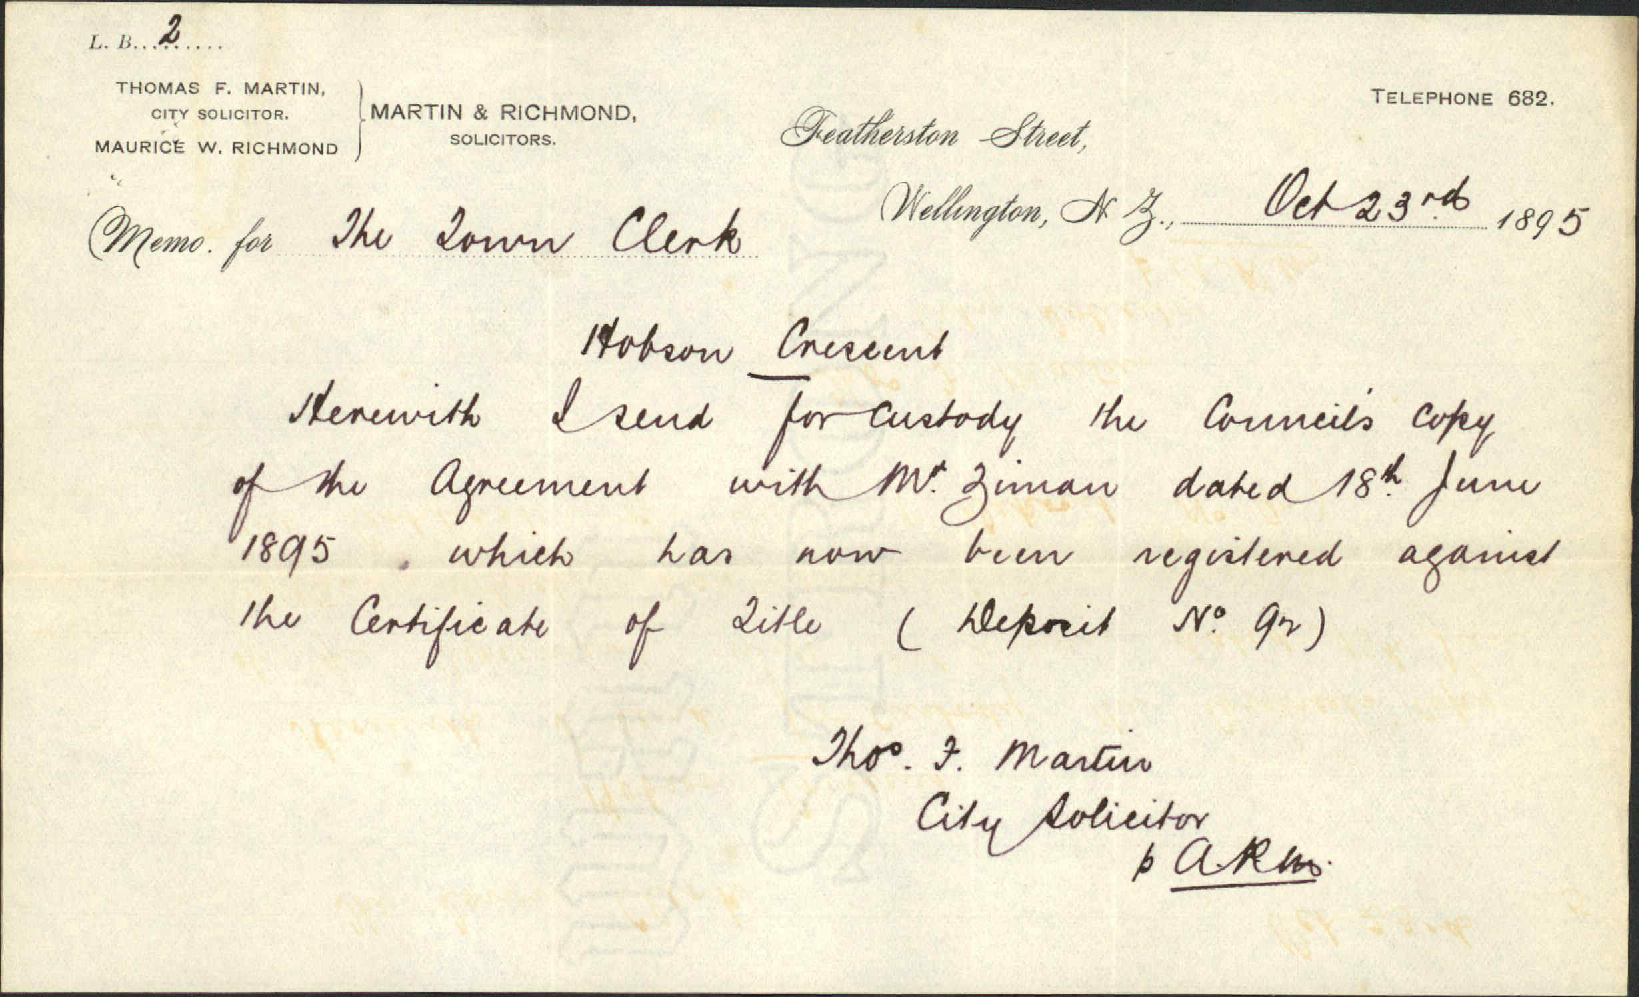 L. B. 2
TELEPHONE 682.
THOMAS F. MARTIN,
CITY SOLICITOR.
MAURICE W. RICHMOND
MARTIN & RICHMOND,
SOLICITORS.
Featherston Street,
Wellington, N Z., Oct 23rd 1895
Memo. for The Town Clerk
Hobson Crescent
Herewith I send for custody the Council's copy
of the Agreement with Mr. Ziman dated 18th. June
1895 which has now been registered against
the Certificate of Title (Deposit No.
Thos. F. Martin
City Solicitor
p